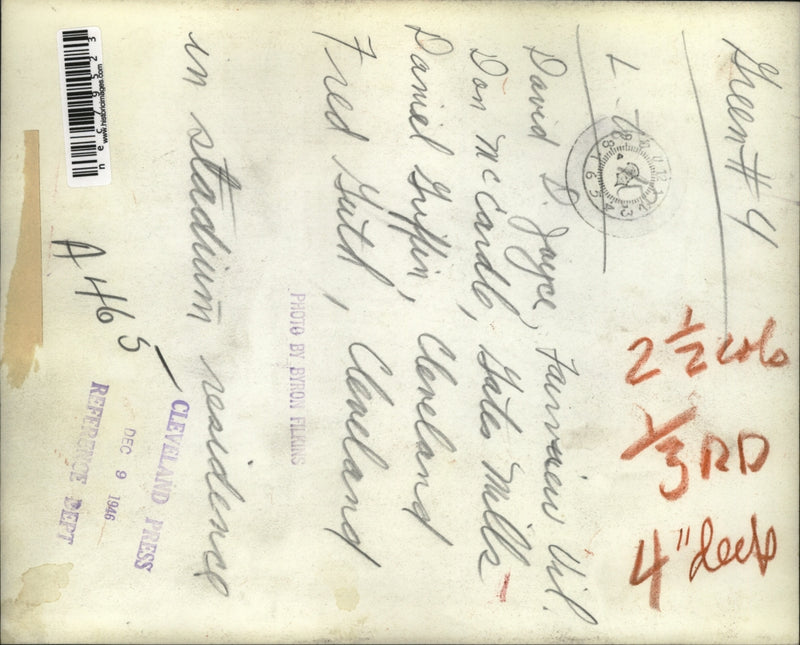 Green #4
L. to R.
David D. Joyce, Fairview Vil.
Don McCardle, Gates Mills
Daniel Griffin, Cleveland
Fred Guth, Cleveland
in stadium residence
PHOTO BY BYRON FILKINS
A465
CLEVELAND PRESS
DEC 9 1946
REFERENCE DEPT
2 1/2 cols
1/3 RD
4" deep
www.historicimages.com